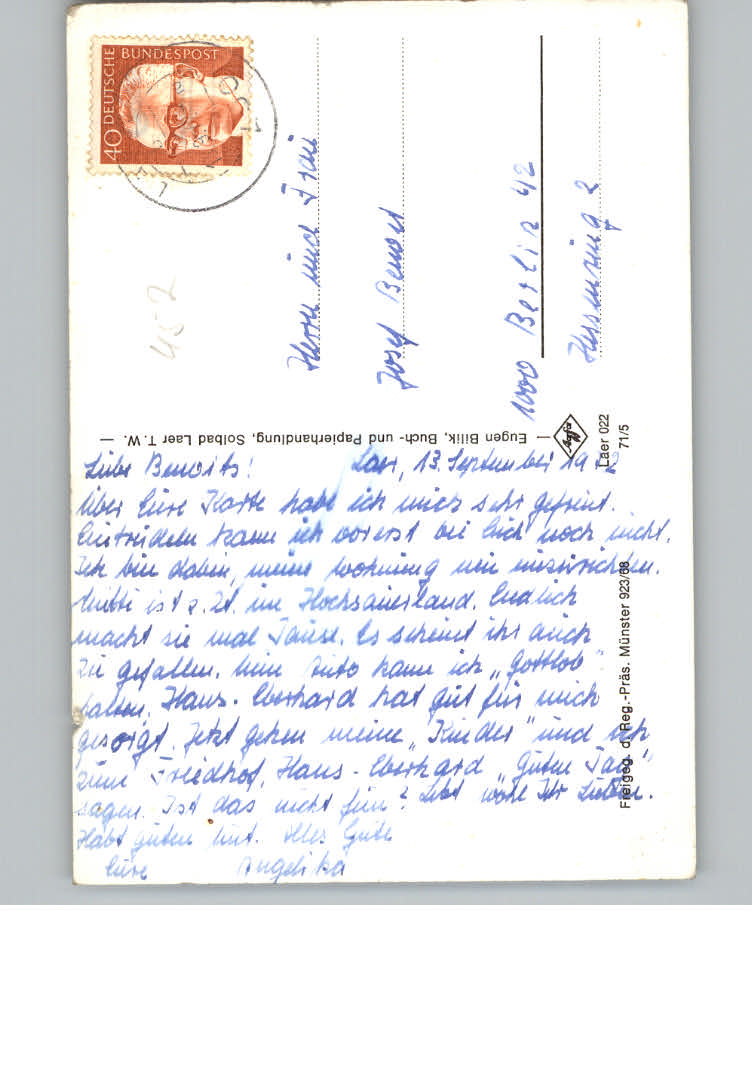 DEUTSCHE BUNDESPOST
40
452
Herrn und Frau
Josef
1000 Berlin 42
2
— Eugen Bilik, Buch- und Papierhandlung, Solbad Laer T.W. —
Agfa
Laer 022
71/5
Freigeg. d. Reg.-Präs. Münster 923/68
Liebe Benoits! Laer, 13. September 1972
Über Eure Karte habe ich mich sehr gefreut.
Eintrudeln kann ich vorerst bei Euch noch nicht.
Ich bin dabei, meine Wohnung neu einzurichten.
Mutti ist z. Zt. im Hochsauerland. Endlich
macht sie mal Pause. Es scheint ihr auch
zu gefallen. Mein Auto kann ich „Gottlob"
halten. Hans-Eberhard hat gut für mich
gesorgt. Jetzt gehen meine „Kinder" und ich
zum Friedhof, Hans-Eberhard „Guten Tag"
sagen. Ist das nicht fein? Lebt wohl Ihr Lieben.
Habt guten Mut. Alles Gute
Eure Angelika